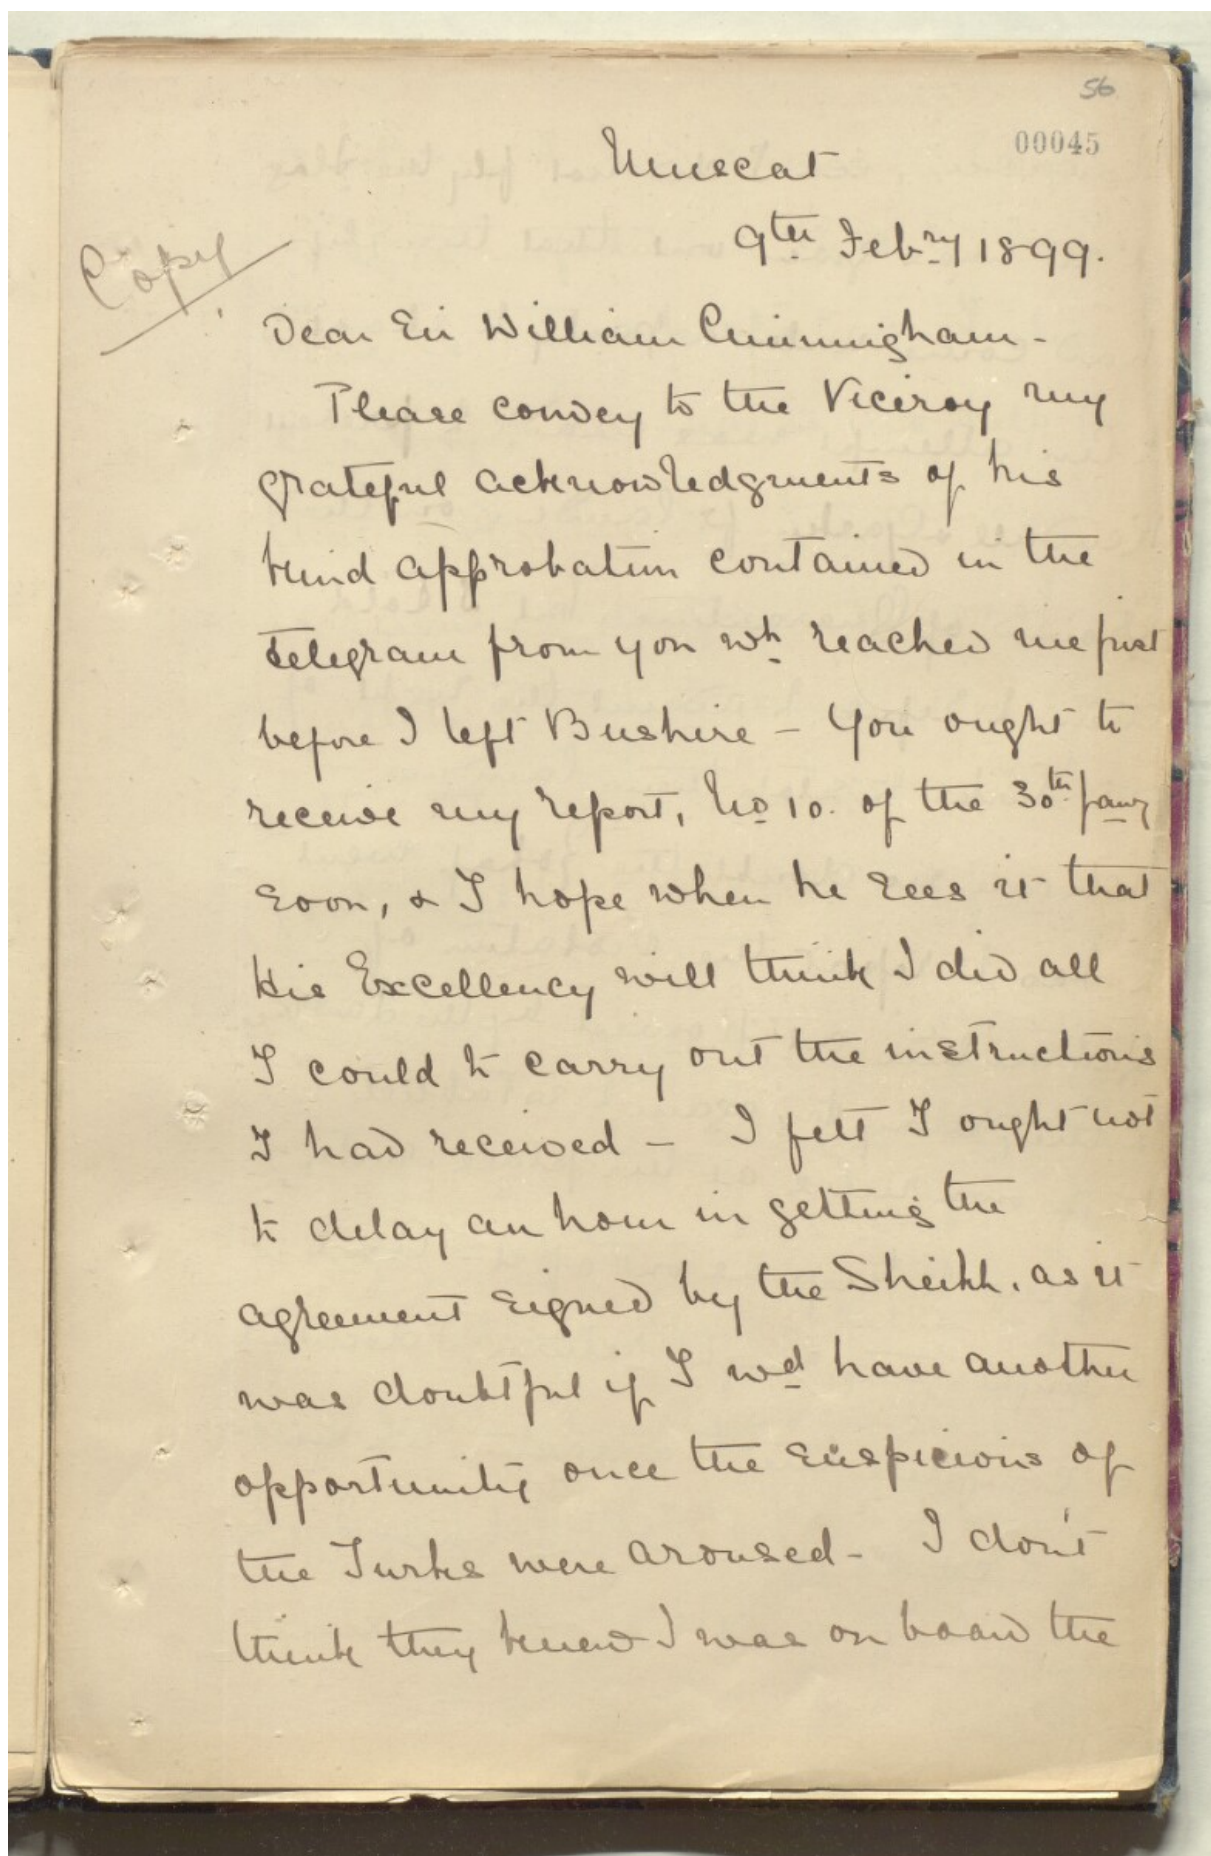 56
00045
Muscat
9th Febry 1899.
Copy
Dear Sir William Cunningham -
Please convey to the Viceroy my
grateful acknowledgments of his
kind approbation contained in the
telegram from you wh reached me just
before I left Bushire - You ought to
receive my report, No 10. of the 30th Jany
soon, & I hope when he sees it that
His Excellency will think I did all
I could to carry out the instructions
I had received - I felt I ought not
to delay an hour in getting the
agreement signed by the Sheikh, as it
was doubtful if I wd have another
opportunity once the suspicions of
the Turks were aroused - I don't
think they knew I was on board the